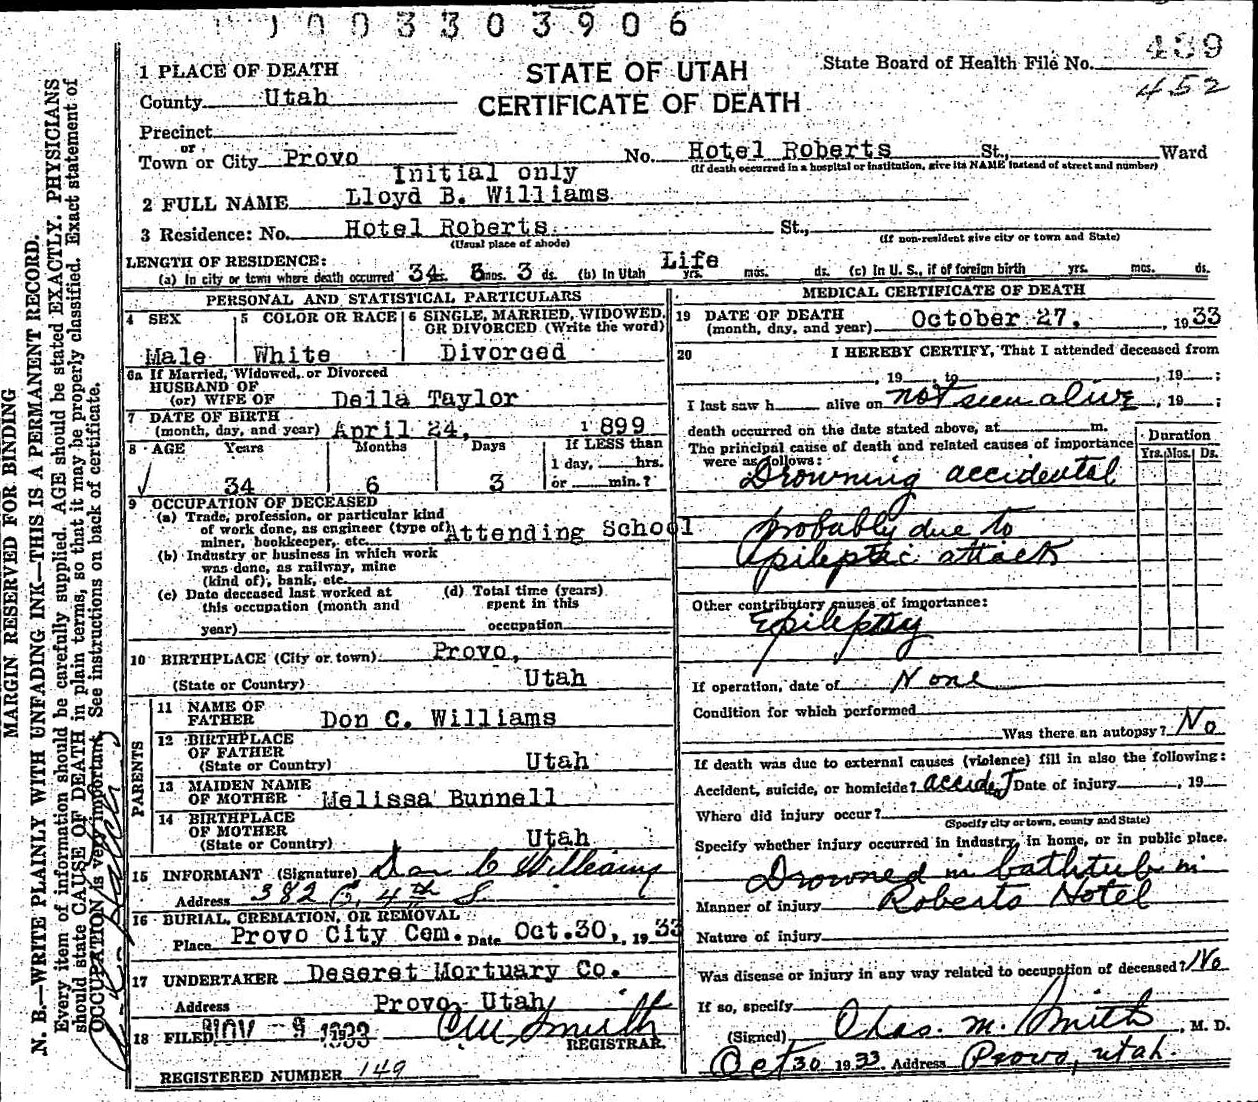 003303906
439
452
State Board of Health File No.
STATE OF UTAH
CERTIFICATE OF DEATH
1 PLACE OF DEATH
County Utah
Precinct
or
Town or City Provo No. Hotel Roberts St., Ward
(If death occurred in a hospital or institution, give its NAME instead of street and number)
Initial only
2 FULL NAME Lloyd B. Williams
3 Residence: No. Hotel Roberts St.,
(Usual place of abode) (If non-resident give city or town and State)
LENGTH OF RESIDENCE:
(a) In city or town where death occurred 34 6 mos. 3 ds. (b) In Utah Life yrs. mos. ds. (c) In U. S., if of foreign birth yrs. mos. ds.
PERSONAL AND STATISTICAL PARTICULARS
4 SEX
Male
5 COLOR OR RACE
White
6 SINGLE, MARRIED, WIDOWED, OR DIVORCED (Write the word)
Divorced
6a If Married, Widowed, or Divorced
HUSBAND OF
(or) WIFE OF Deila Taylor
7 DATE OF BIRTH
(month, day, and year) April 24, 1899
8 AGE Years Months Days If LESS than
1 day, hrs.
34 6 3 or min.?
9 OCCUPATION OF DECEASED
(a) Trade, profession, or particular kind
of work done, as engineer (type of) Attending School
miner, bookkeeper, etc.
(b) Industry or business in which work
was done, as railway, mine
(kind of), bank, etc.
(c) Date deceased last worked at
this occupation (month and
year)
(d) Total time (years)
spent in this
occupation
10 BIRTHPLACE (City or town) Provo,
(State or Country) Utah
PARENTS
11 NAME OF
FATHER Don C. Williams
12 BIRTHPLACE
OF FATHER
(State or Country) Utah
13 MAIDEN NAME
OF MOTHER Melissa Bunnell
14 BIRTHPLACE
OF MOTHER
(State or Country) Utah
15 INFORMANT (Signature) Don C Williams
Address 382 E. 4th S.
16 BURIAL, CREMATION, OR REMOVAL
Place Provo City Cem. Date Oct. 30, 1933
17 UNDERTAKER Deseret Mortuary Co.
Address Provo Utah
18 FILED NOV - 9 1933
REGISTRAR.
REGISTERED NUMBER 149
MEDICAL CERTIFICATE OF DEATH
19 DATE OF DEATH
(month, day, and year) October 27, 1933
20 I HEREBY CERTIFY, That I attended deceased from
, 19 to , 19 ;
I last saw h alive on not seen alive, 19 ;
death occurred on the date stated above, at m.
The principal cause of death and related causes of importance
were as follows:
Duration
Yrs. Mos. Ds.
Drowning accidental
probably due to
Epileptic attack
Other contributory causes of importance:
Epilepsy
If operation, date of None
Condition for which performed
Was there an autopsy? No
If death was due to external causes (violence) fill in also the following:
Accident, suicide, or homicide? accident Date of injury , 19
Where did injury occur?
(Specify city or town, county and State)
Specify whether injury occurred in industry, in home, or in public place.
Drowned in bathtub in
Manner of injury Roberts Hotel
Nature of injury
Was disease or injury in any way related to occupation of deceased? No
If so, specify
(Signed) Chas. M. Smith, M. D.
Oct 30 1933 Address Provo, Utah.
MARGIN RESERVED FOR BINDING
N. B.—WRITE PLAINLY WITH UNFADING INK—THIS IS A PERMANENT RECORD.
Every item of information should be carefully supplied. AGE should be stated EXACTLY. PHYSICIANS
should state CAUSE OF DEATH in plain terms, so that it may be properly classified. Exact statement of
OCCUPATION is very important. See instructions on back of certificate.